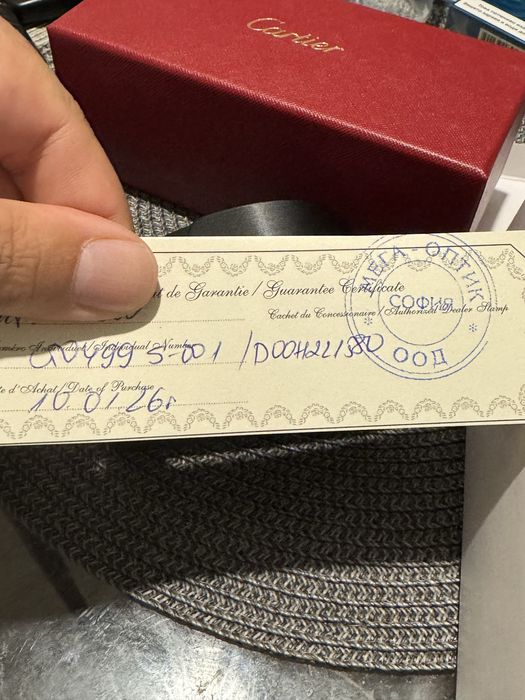 Cartier
t de Garantie / Guarantee Certificate
Cachet du Concessionaire / Authorized Dealer Stamp
МЕГА - ОПТИК
СОФИЯ
ООД
méro Individuel / Individual Number
CT0499S-001 / D00H221380
te d'Achat / Date of Purchase
10.01.26г